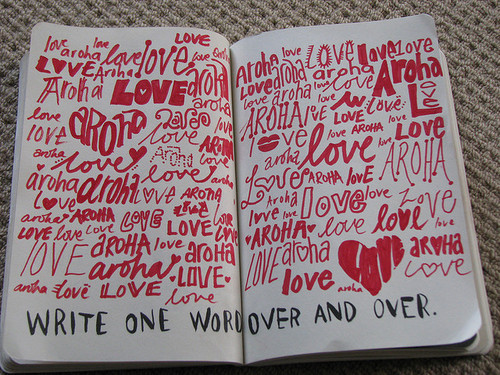 love aroha love LOVE
love aroha love love love
LOVE Aroha love aroha
Aroha LOVE aroha
love AROHA love
love love AROHA
aroha love aroha love
aroha aroha LOVE AROHA
love aroha LOVE love
aroha AROHA LOVE LOVE
LOVE love love LOVE love
LOVE AROHA love aroha
aroha LOVE
aroha love LOVE LOVE love
Aroha love LOVE love LOVE
LOVE aroha aroha Aroha
love aroha love love
AROHA love love LOVE
love LOVE AROHA love LOVE
aroha love love AROHA
Love AROHA LOVE
Aroha love love LOVE
love love love LOVE love love
AROHA aroha love aroha
LOVE love aroha LOVE love
WRITE ONE WORD OVER AND OVER.